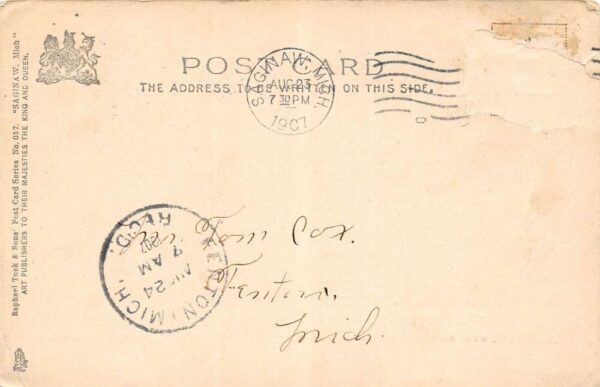 POST CARD
THE ADDRESS TO BE WRITTEN ON THIS SIDE.
SAGINAW, MICH.
AUG 23
7 30 PM
1907
Raphael Tuck & Sons' Post Card Series No. 037. "SAGINAW, Mich"
ART PUBLISHERS TO THEIR MAJESTIES THE KING AND QUEEN.
Tom Cox.
Fenton,
Mich.
MICH.
24
7 AM
1907
REC'D.